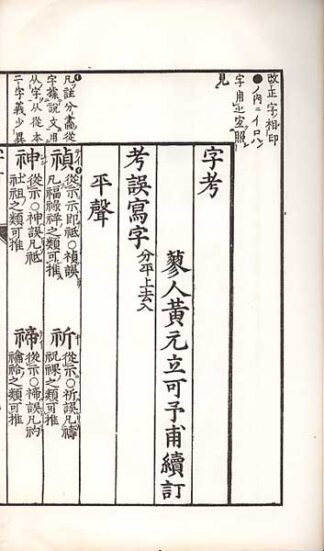 改正字相印
●ノ内ニイロハ
字用之宜照
見
字考
蓼人黃元立可予甫續訂
考誤寫字 分平上去入
平聲
凡註分畫從
字據說文用
从字从從本
二字義少異
禎 從示示即祗○禎誤
凡福祿祥之類可推
祈 從示○祈誤凡禱
祝祼之類可推
神 從示○神誤凡祗
社祖之類可推
禘 從示○禘誤凡礿
禴祫之類可推